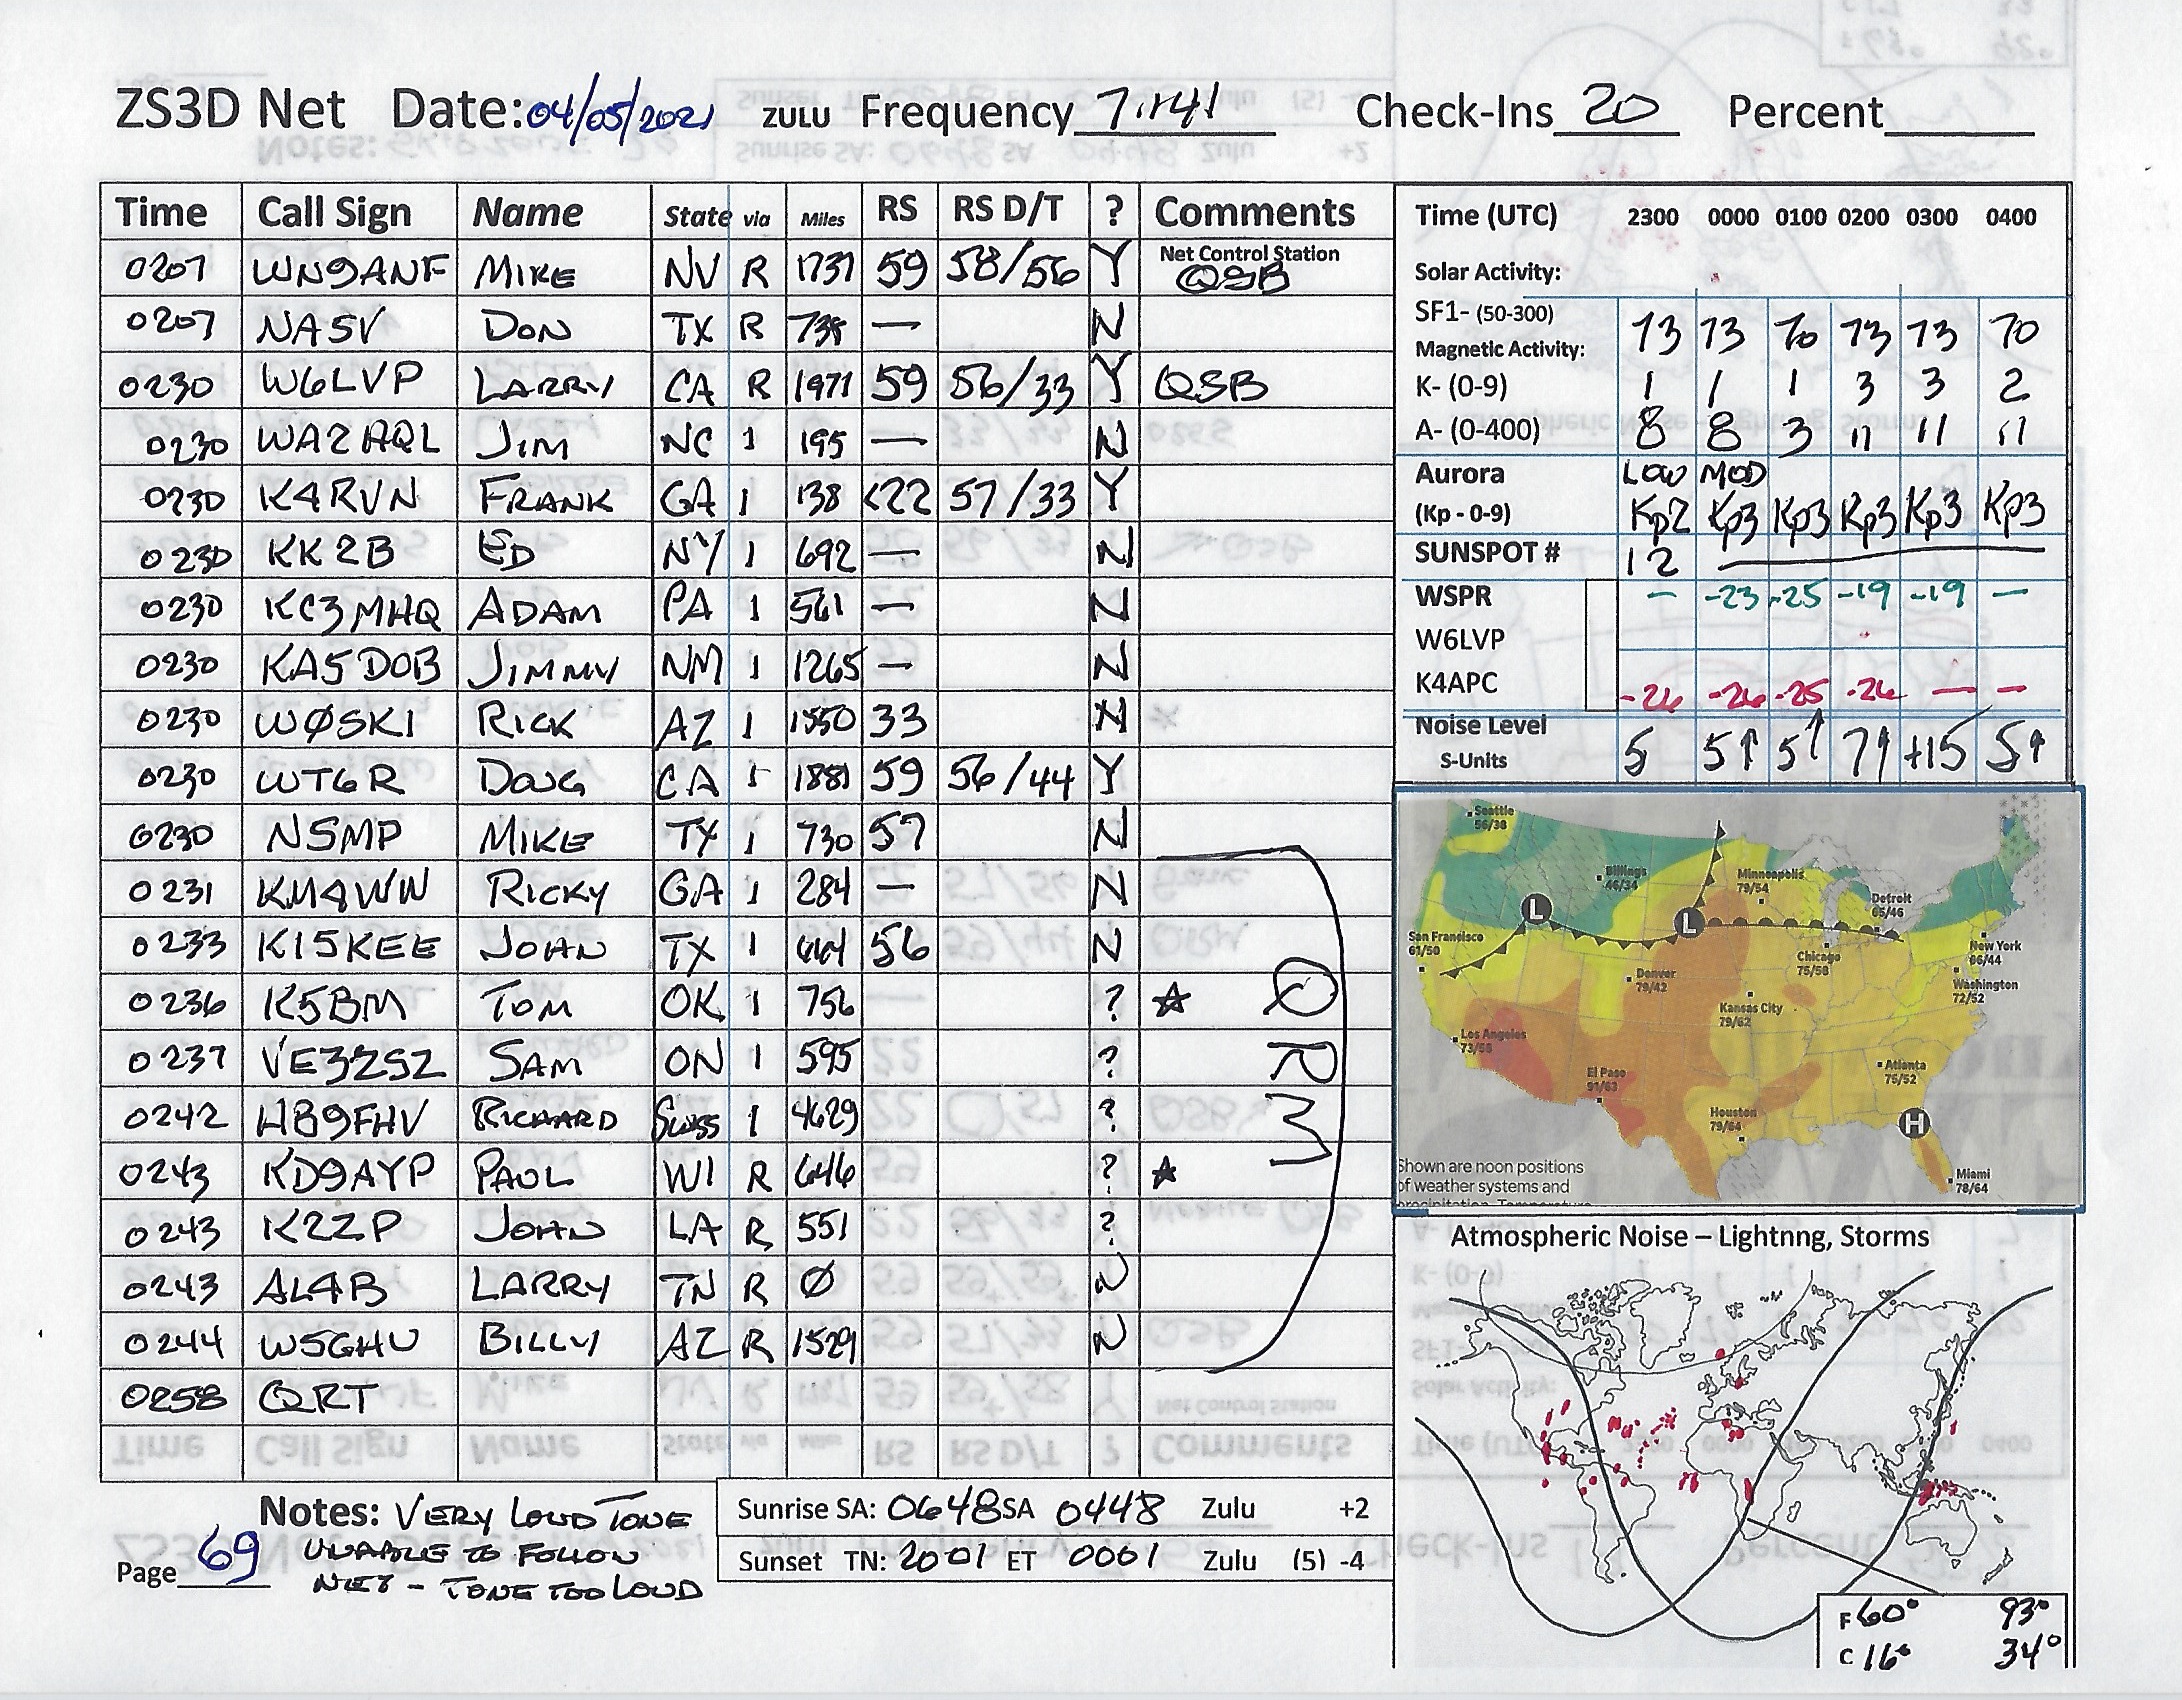 ZS3D Net Date: 04/05/2021 ZULU Frequency 7.141 Check-Ins 20 Percent
Time Call Sign Name State via Miles RS RS D/T ? Comments
0207 WN9ANF MIKE NV R 1737 59 58/56 Y Net Control Station QSB
0207 NA5V DON TX R 738 — N
0230 W6LVP LARRY CA R 1971 59 56/33 Y QSB
0230 WA2AQL JIM NC 1 195 — N
0230 K4RVN FRANK GA 1 138 <22 57/33 Y
0230 KK2B ED NY 1 692 — N
0230 KC3MHQ ADAM PA 1 561 — N
0230 KA5DOB JIMMY NM 1 1265 — N
0230 WØSKI RICK AZ 1 1550 33 N
0230 WT6R DOUG CA 1 1881 59 56/44 Y
0230 N5MP MIKE TX 1 730 57 N
0231 KM4WW RICKY GA 1 284 — N
0233 KI5KEE JOHN TX 1 56 N
0236 K5BM TOM OK 1 756 ? ☆
0237 VE3ZSZ SAM ON 1 595 ?
0242 HB9FHV RICHARD SWISS 1 4629 ?
0243 KD9AYP PAUL WI R 646 ? ☆
0243 K2ZP JOHN LA R 551 ?
0243 AL4B LARRY TN R Ø N
0244 W5GHU BILLY AZ R 1529 N
0258 QRT
QRM
Notes: VERY LOUD TONE
UNABLE TO FOLLOW
NET - TONE TOO LOUD
Page 69
Sunrise SA: 0648 SA 0448 Zulu +2
Sunset TN: 2001 ET 0001 Zulu (5) -4
Time (UTC) 2300 0000 0100 0200 0300 0400
Solar Activity:
SF1- (50-300) 73 73 70 73 73 70
Magnetic Activity:
K- (0-9) 1 1 1 3 3 2
A- (0-400) 8 8 3 11 11 11
Aurora LOW MOD
(Kp - 0-9) Kp2 Kp3 Kp3 Kp3 Kp3 Kp3
SUNSPOT # 12
WSPR — -23 -25 -19 -19 —
W6LVP
K4APC -26 -26 -25 -26 — —
Noise Level
S-Units 5 5↑ 5↑ 7↑ +15 5↑
Seattle
56/38
Billings
46/34
Minneapolis
79/54
Detroit
65/46
L
L
San Francisco
61/50
New York
66/44
Chicago
75/58
Denver
79/42
Washington
72/52
Kansas City
79/62
Los Angeles
73/58
Atlanta
75/52
El Paso
91/63
Houston
79/64
H
Miami
78/64
Shown are noon positions
of weather systems and
precipitation. Temperature
Atmospheric Noise – Lightnng, Storms
F 60° 93°
C 16° 34°